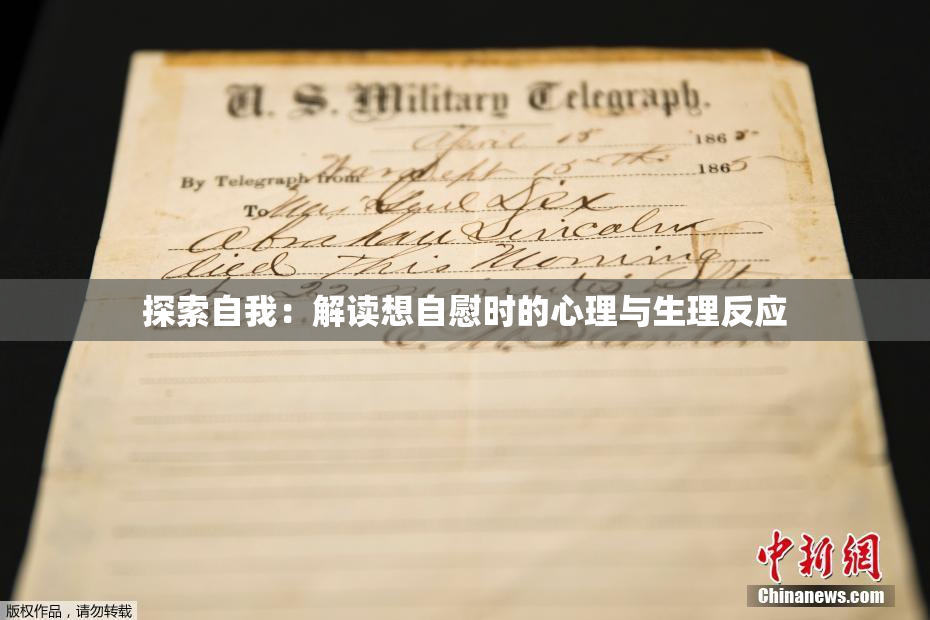 U. S. Military Telegraph.
April 15 1865
By Telegraph from War Dept 15th 1865
To Maj Genl Dix
Abraham Lincoln
died This Morning
at 22 minutes after
探索自我：解读想自慰时的心理与生理反应
E. M. Stanton
中新網
Chinanews.com
版权作品，请勿转载